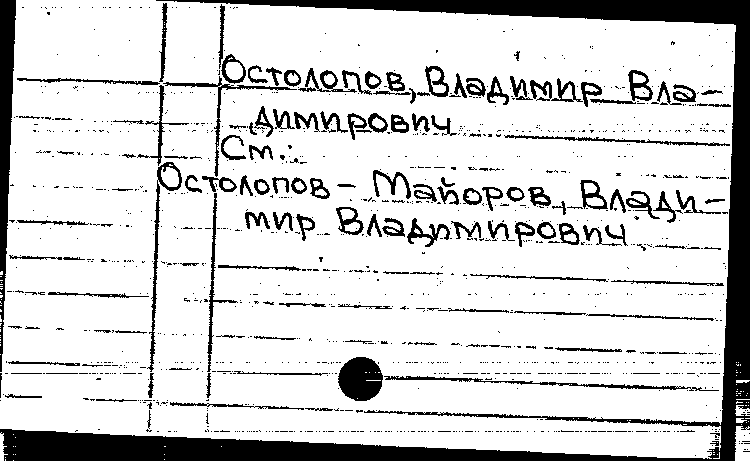 Остолопов, Владимир Вла-
димирович
См.:
Остолопов - Майоров, Влади-
мир Владимирович